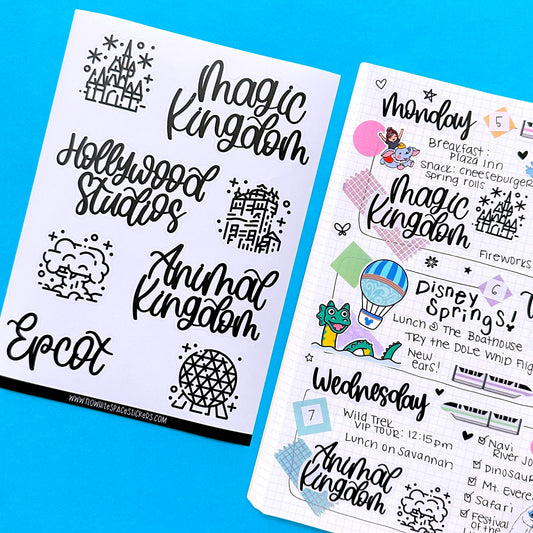 Magic
Kingdom
Hollywood
Studios
Animal
Kingdom
Epcot
Monday
5
Breakfast:
Plaza Inn
Snack: Cheeseburger
Spring rolls
Magic
Kingdom
Fireworks
6
Disney
Springs!
Lunch @ The Boathouse
Try the Dole Whip
New
ears!
Wednesday
7
Wild Trek
VIP Tour: 12:15pm
Lunch on Savannah
Animal
Kingdom
Navi
River
Mt.
Safari
Festival
of the